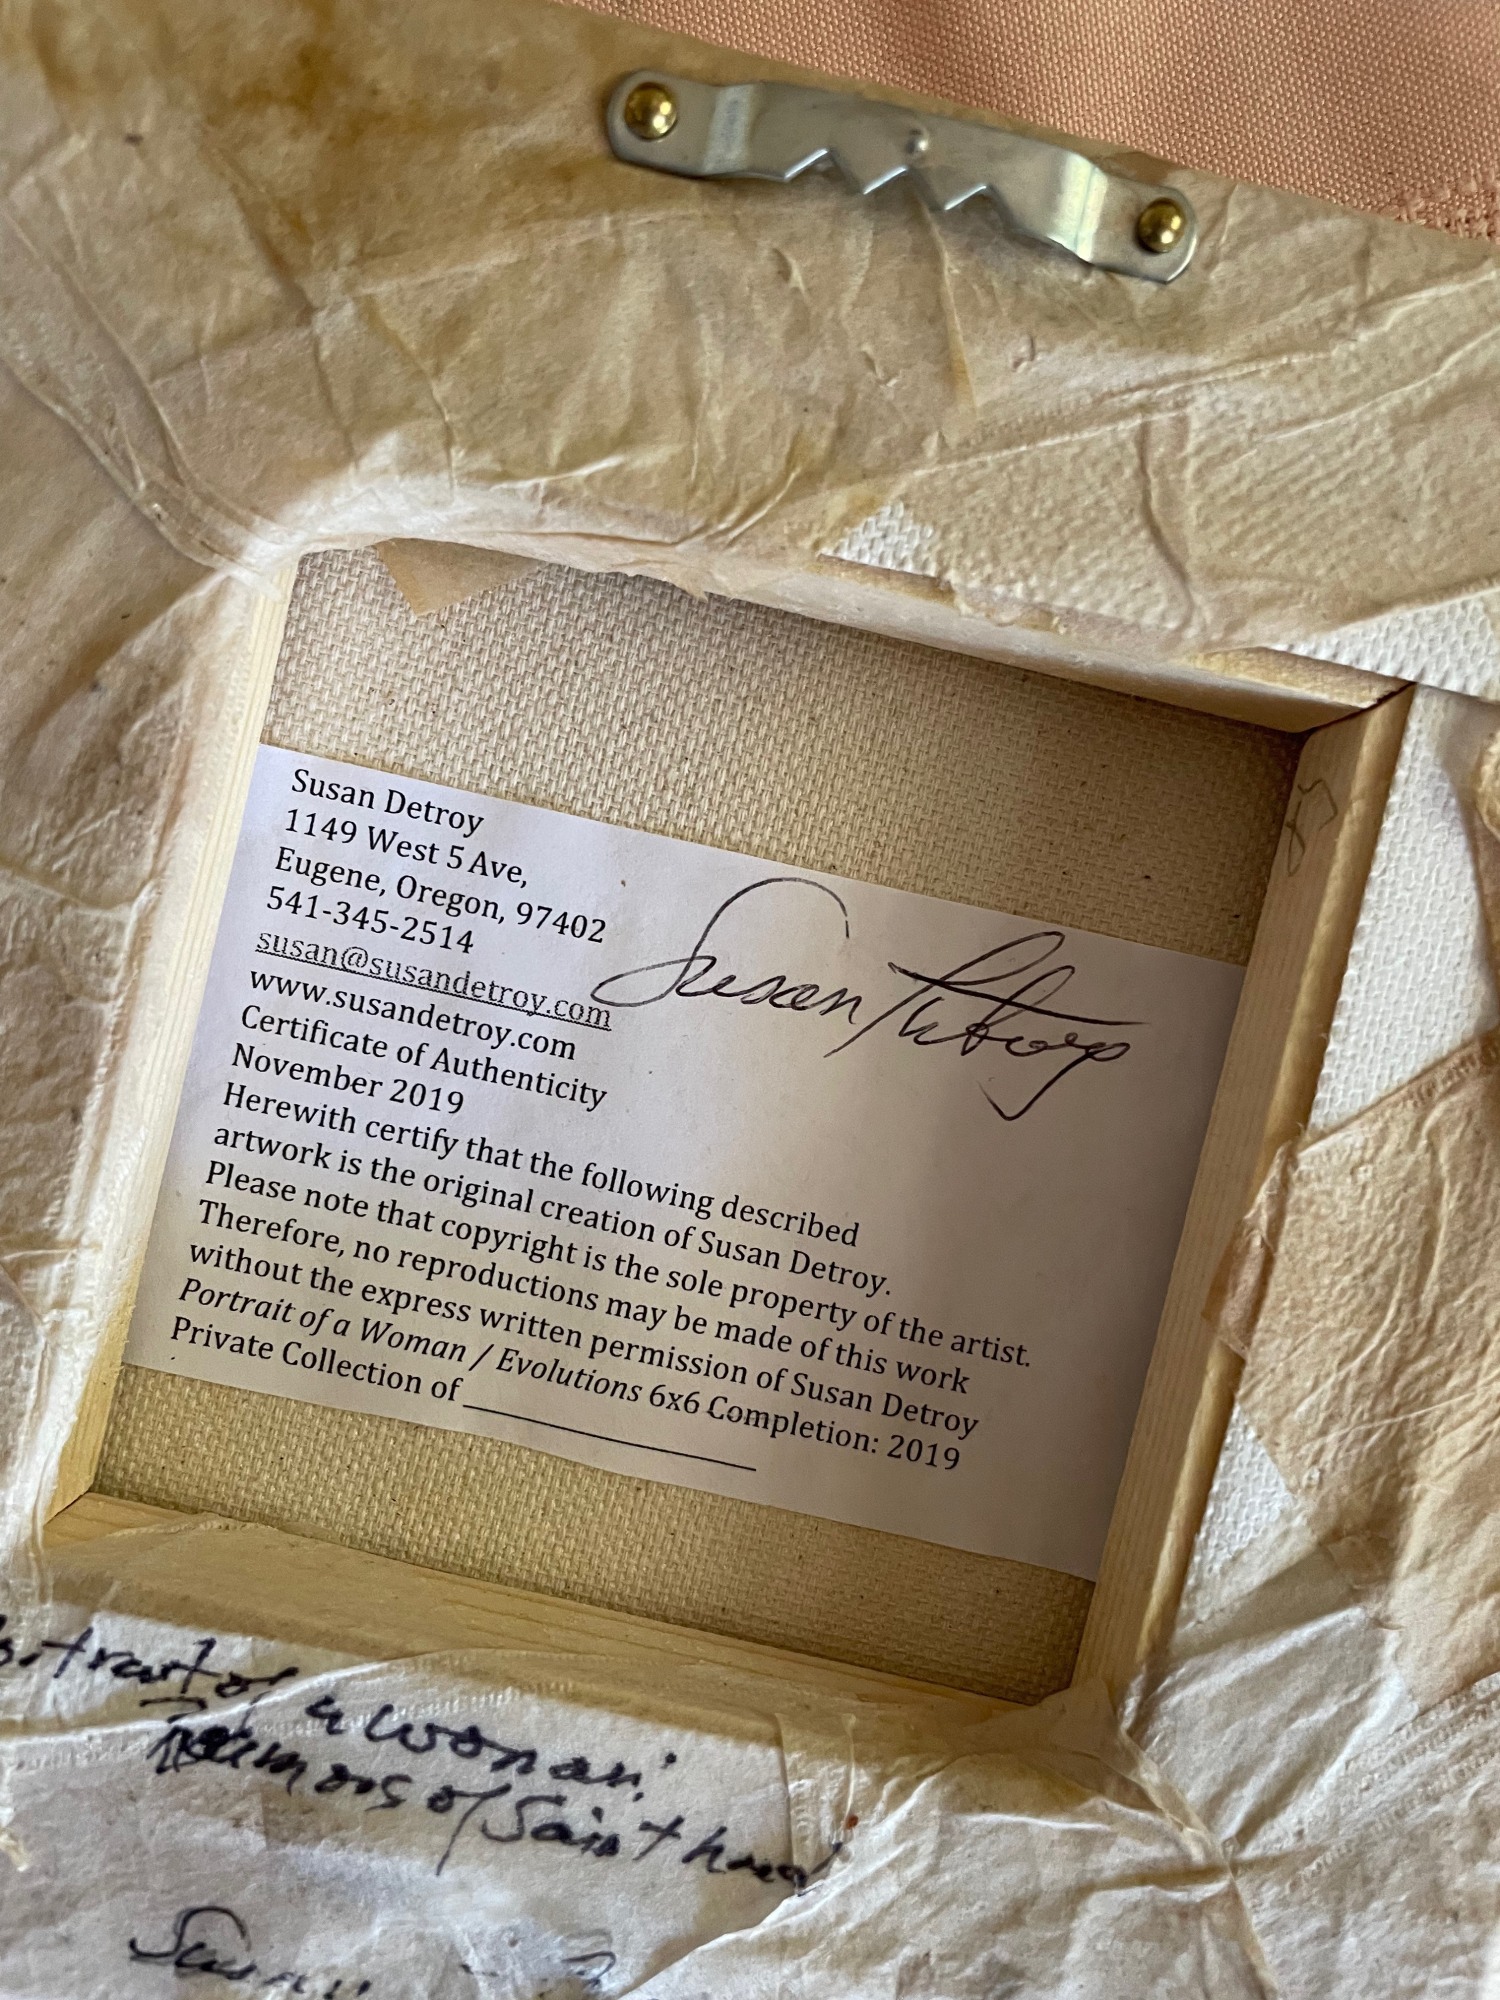 Susan Detroy
1149 West 5 Ave,
Eugene, Oregon, 97402
541-345-2514
susan@susandetroy.com
www.susandetroy.com
Certificate of Authenticity
November 2019
Herewith certify that the following described
artwork is the original creation of Susan Detroy.
Please note that copyright is the sole property of the artist.
Therefore, no reproductions may be made of this work
without the express written permission of Susan Detroy
Portrait of a Woman / Evolutions 6x6 Completion: 2019
Private Collection of
Susan Detroy
a Woman:
of Sainthood
Susan